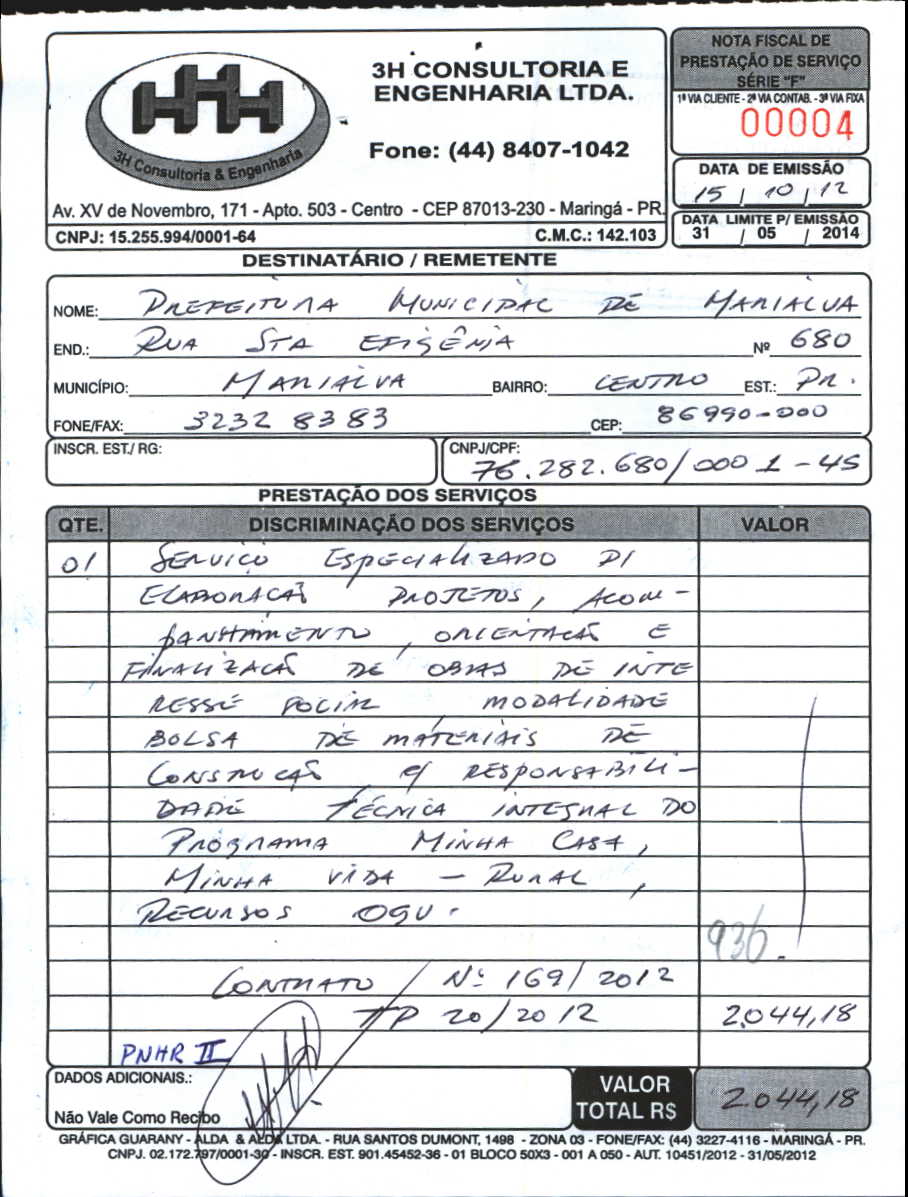 HHH
3H Consultoria & Engenharia
3H CONSULTORIA E
ENGENHARIA LTDA.
Fone: (44) 8407-1042
Av. XV de Novembro, 171 - Apto. 503 - Centro - CEP 87013-230 - Maringá - PR.
CNPJ: 15.255.994/0001-64 C.M.C.: 142.103
NOTA FISCAL DE
PRESTAÇÃO DE SERVIÇO
SÉRIE "F"
1ª VIA CLIENTE - 2ª VIA CONTAB. - 3ª VIA FIXA
00004
DATA DE EMISSÃO
15 / 10 / 12
DATA LIMITE P/ EMISSÃO
31 / 05 / 2014
DESTINATÁRIO / REMETENTE
NOME: PREFEITURA MUNICIPAL DE MARIALVA
END.: RUA STA EFIGÊNIA Nº 680
MUNICÍPIO: MARIALVA BAIRRO: CENTRO EST.: PR.
FONE/FAX: 3232 8383 CEP: 86990-000
INSCR. EST./ RG: CNPJ/CPF:
76.282.680/0001-45
PRESTAÇÃO DOS SERVIÇOS
QTE. DISCRIMINAÇÃO DOS SERVIÇOS VALOR
01 SERVIÇO ESPECIALIZADO P/
ELABORAÇÃ PROJETOS, ACOM-
PANHAMENTO, ORIENTAÇÃ E
FINALIZAÇÃ DE OBRAS DE INTE
RESSE SOCIAL, MODALIDADE
BOLSA DE MATERIAIS DE
CONSTRUÇÃ, C/ RESPONSABILI-
DADE TÉCNICA INTEGRAL DO
PROGRAMA MINHA CASA,
MINHA VIDA - RURAL,
RECURSOS OGU.
936.
CONTRATO Nº 169/2012
TP 20/2012 2.044,18
PNHR II
DADOS ADICIONAIS.:
Não Vale Como Recibo
VALOR
TOTAL R$ 2.044,18
GRÁFICA GUARANY - ALDA & ALDA LTDA. - RUA SANTOS DUMONT, 1498 - ZONA 03 - FONE/FAX: (44) 3227-4116 - MARINGÁ - PR.
CNPJ. 02.172.797/0001-30 - INSCR. EST. 901.45452-36 - 01 BLOCO 50X3 - 001 A 050 - AUT. 10451/2012 - 31/05/2012